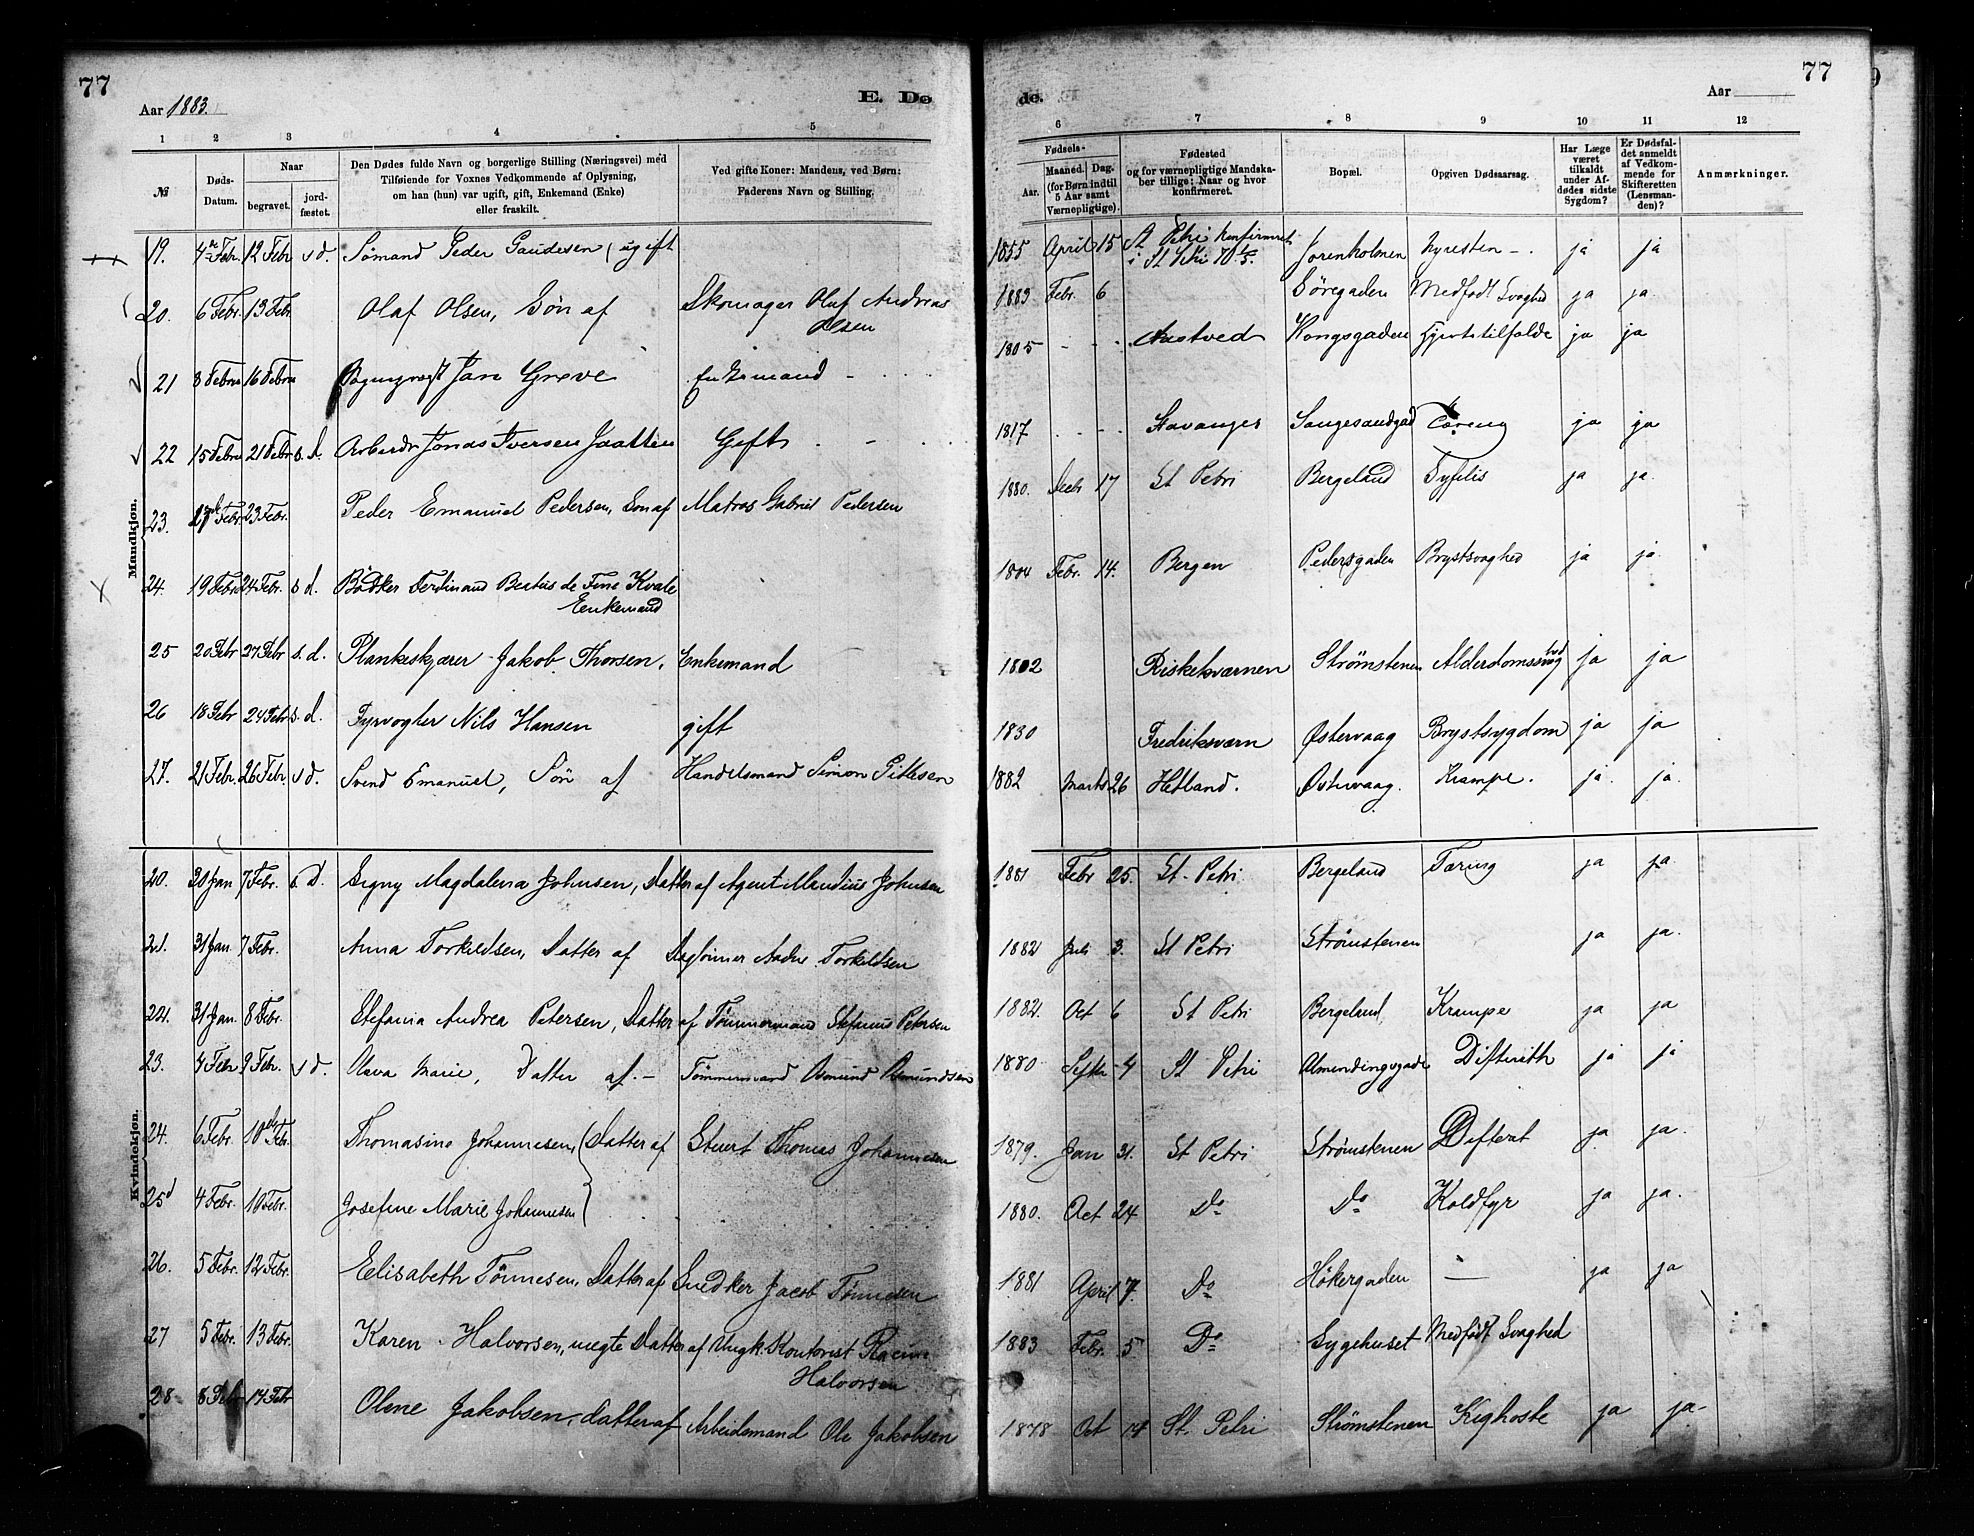 77
Aar 1883.
E. Dø
1 2 3 4 5
№
Døds-Datum.
Naar
begravet. jord-fæstet.
Den Dødes fulde Navn og borgerlige Stilling (Næringsvei) med
Tilføiende for Voxnes Vedkommende af Oplysning,
om han (hun) var ugift, gift, Enkemand (Enke)
eller fraskilt.
Ved gifte Koner: Mandens, ved Børn:
Faderens Navn og Stilling.
Mandkjøn.
19. 4de Febr. 12 Febr s d. Sømand Peder Gaudesen (ugift
20. 6 Febr. 13 Febr. Olaf Olsen, Søn af Skomager Olaf Andreas
Olsen
21 8 Febru 16 Febru Jan Greve Enkemand - 
22 15 Febru 21 Febr s. d. Arbeider Jonas Iversen Jaatten Gift
23. Febr. 23 Febr. Peder Emanuel Pedersen, Søn af Matros Gabriel Pedersen
24. 19 Febr 24 Febr. s d. Bødker Ferdinand Beatus de Fine Kvale
Enkemand
25 20 Febr 27 Febr s. d. Plankeskjærer Jakob Thorsen. Enkemand
26 18 Febr 24 Febr s. d. Fyrvogter Nils Hansen gift
27. 21 Febr. 26 Febr. s d. Svend Emanuel, Søn af Handelsmand Simon Pittesen
Kvindekjøn.
20. 30 Jan 7 Febr. s. d. Signy Magdalena Johnsen, Datter af Agent Maudius Johnsen
21. 31 Jan 7 Febr. Anna Torkildsen, Datter af Dagleier Aadne Torkildsen
22. 31 Jan. 8 Febr. Stefania Andrea Petersen, Datter af Tømmermand Stefanus Petersen
23. 4 Febr 9 Febr. s d. Olava Marie, Datter af - Tømmermand Osmund Osmundsen
24. 6 Febr. 10de Febr. Thomasine Johannesen, (Datter af Stuert Thomas Johannesen
25 4 Febr. 10 Febr. Josefine Marie Johannesen
26. 5 Febr. 12 Febr. Elisabeth Tönnesen, Datter af Snedker Jacob Tönnesen
27 5 Febr. 13 Febr. Karen Halvorsen, uegte Datter af Ungk. Kontorist
Halvorsen
28 8 Febr 14 Febr Oline Jakobsen, datter af Arbeidsmand Ole Jakobsen
77
de.
Aar
6 7 8 9 10 11 12
Fødsels-
Aar.
Maaned. Dag.
(for Børn indtil
5 Aar samt
Værnepligtige).
Fødested
og for værnepligtige Mandska-
ber tillige: Naar og hvor
konfirmeret.
Bopæl.
Opgiven Dødsaarsag.
Har Læge
været
tilkaldt
under Af-
dødes sidste
Sygdom?
Er Dødsfal-
det anmeldt
af Vedkom-
mende for
Skifteretten
(Lensman-
den)?
Anmærkninger.
1855 April 15 St Petri Konfirmeret
i St Petri Jorenholmen ja ja
1883 Febr. 6 Søregaden Medfødt Svaghed ja ja.
1805 - - Austved Kongsgaden Hjertetilfælde ja ja
1817 Stavanger Tæring ja ja
1880. Decbr 17 St Petri Bergeland Syfilis ja ja.
1804 Febr. 14. Bergen Pedersgaden Brystsvaghed ja ja.
1802 Riskekværnen Strømstenen Alderdomssvaghed ja ja
1830 Fredriksværn Østervaag Brystsygdom ja ja
1882 Marts 26 Hetland. Østervaag. Krampe. ja ja.
1881 Febr 25. St. Petri Bergeland Tæring ja ja.
1882 Juli 3. St Petri Strømstenen ja ja.
1882. Oct 6 St Petri Bergeland Krampe ja ja
1880 Septbr 4 St Petri Almendingsgade Difterith ja ja
1879. Jan 31. St Petri Strømstenen Difterit ja ja.
1880. Oct 24 Do Do Koldfyr ja ja.
1881 April 7. Do Høkergaden — ja ja
1883 Febr. 5. Do Sygehuset Medfødt Svaghed
1878 Oct 14 St. Petri Strømstenen Kighoste ja ja-